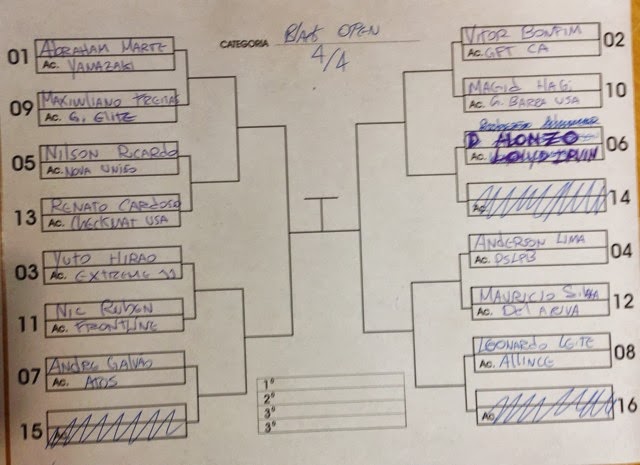 CATEGORIA BLAK OPEN
4/4
01 ABRAHAM MARTE
Ac. YANAZAKI
09 MAXIMILIANO FREITAS
Ac. G. ELITE
05 NILSON RICARDO
Ac. NOVA UNIÃO
13 RENATO CARDOSO
Ac. CHECKMAT USA
03 YUTO HIRAO
Ac. EXTREME
11 NIC RUBEN
Ac. FRONTLINE
07 ANDRE GALVAO
Ac. ATOS
15
VITOR BONFIM 02
Ac. GFT CA
MAGID HAGI 10
Ac. G. BARRA USA
D ALONZO 06
Ac. LOYD IRVIN
14
Ac.
ANDERSON LIMA 04
Ac. DSLPB
MAURICIO SILVA 12
Ac. DELARIVA
LEONARDO LEITE 08
Ac. ALLINCE
16
Ac.
1º
2º
3º
3º